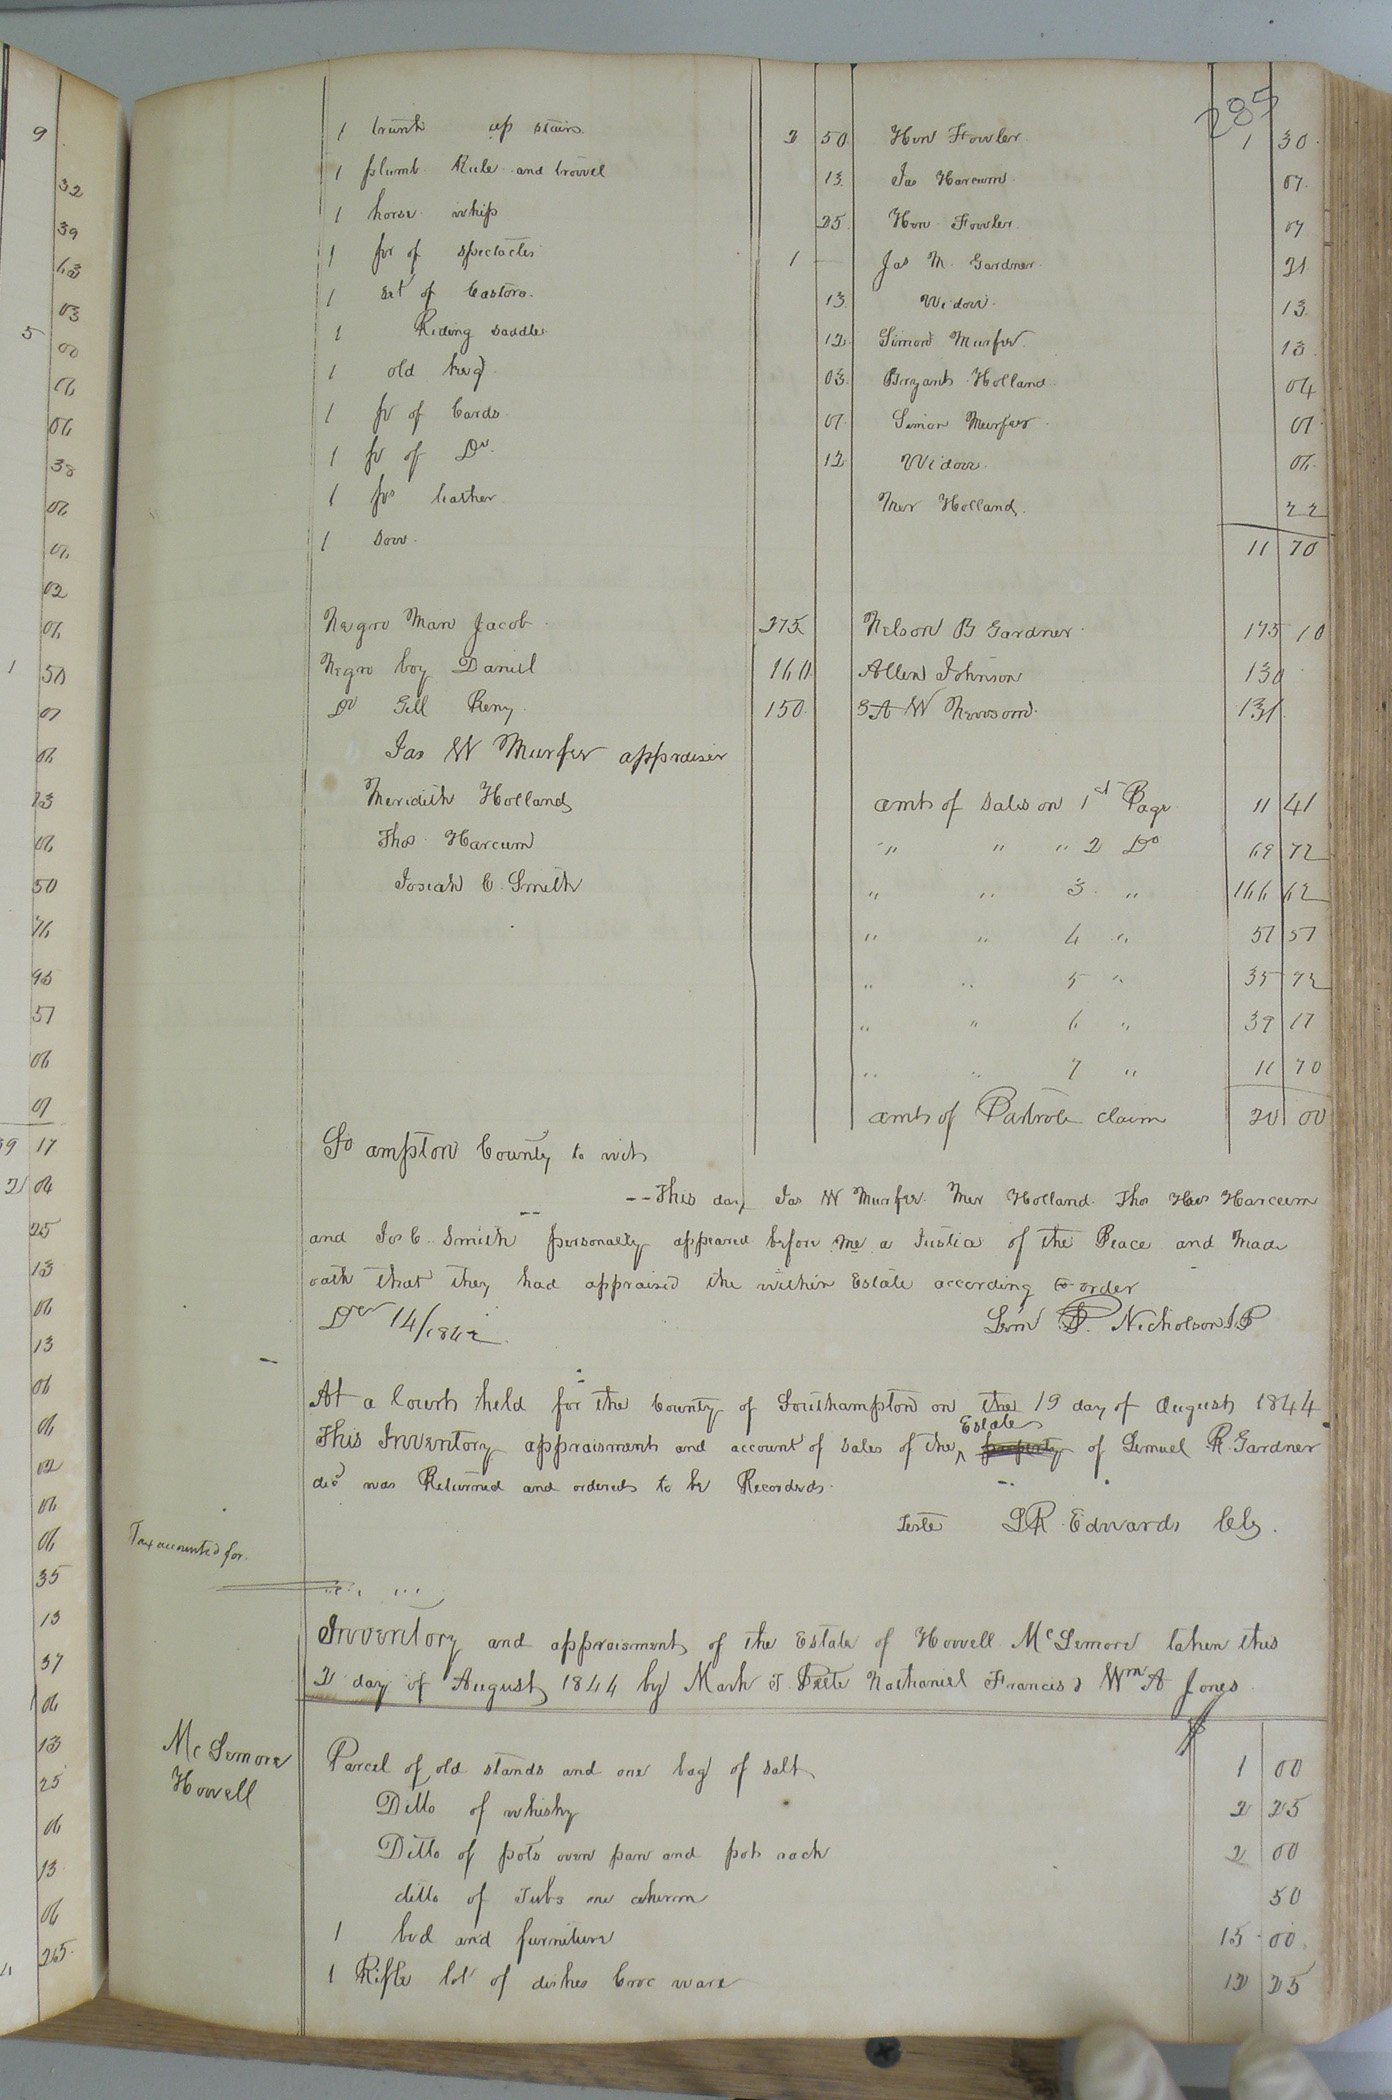 285
1 trunk up stairs 2 50 Hen Fowler 1 30
1 plumb Rule and trowel 13 Jas Harcum 07
1 horse whip 25 Hen Fowler 07
1 pr of spectacles 1 — Jas M. Gardner 21
1 set of Castors 13 Widow 13
1 Riding saddle 12 Simon Murfee 13
1 old keg 03 Bryant Holland 04
1 pr of Cards 07 Simon Murfee 07
1 pr of Do 12 Widow 06
1 ps leather Mer Holland 22
1 sow 11 70
Negro Man Jacob 275 Nelson B Gardner 175 10
Negro boy Daniel 160 Allen Johnson 130
Do Gill Reny 150 A W Newsom 131
Jas W Murfee appraiser
Meridith Holland amt of sales on 1st Page 11 41
Thos Harcum " " " 2 Do 69 72
Josiah C. Smith " " 3 " 166 62
" " 4 " 57 57
" " 5 " 35 72
" " 6 " 39 17
" " 7 " 11 70
amt of Patrole claim 20 00
So ampton County to wit
This day Jas W Murfee Mer Holland Thos Harcum
and Jos C. Smith personally appeared before me a Justice of the Peace and Made
oath that they had appraised the within Estate according to order
Der 14/1842 Lem P. Nicholson J.P
At a Court held for the County of Southampton on the 19 day of August 1844
This Inventory appraisment and account of sales of the Estate property of Lemuel R. Gardner
decd was Returned and ordered to be Recorded
Teste L R Edwards Clk.
Tax accounted for.
Inventory and appraisment of the Estate of Howell McLemore taken this
2 day of August 1844 by Mark T Peete Nathaniel Francis & Wm A Jones
McLemore
Howell
Parcel of old stands and one bag of salt 1 00
Ditto of whisky 2 25
Ditto of pots oven pan and pot rack 2 00
ditto of Tubs one churn 50
1 bed and furniture 15 00
1 Rifle lot of dishes Croc ware 12 25
9
32
39
63
03
5 00
06
06
38
06
07
02
07
1 50
07
06
13
06
50
76
95
57
06
07
39 17
2 04
25
13
06
13
06
06
02
06
06
35
13
37
06
13
25
06
13
06
25